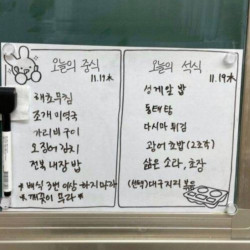 오늘의 중식
11.19木
해초무침
조개 미역국
가리비 구이
오징어 김치
전복 내장 밥
*배식 3번 이상 하지마라*
*깨끗이 무라*
오늘의 석식
11.19木
성게알 밥
동태탕
다시마 튀김
광어 초밥 (2조각)
삶은 소라, 초장
(선택) 대구지리 볶음